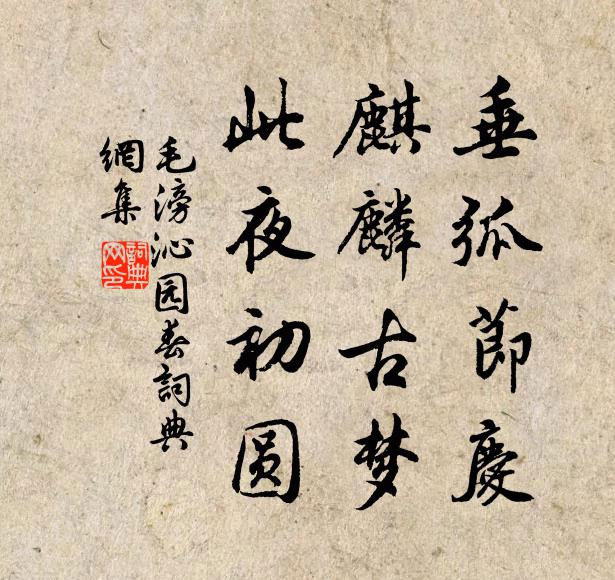 垂弧節慶
麒麟古梦
此夜初圆
毛滂沁园春詞典
網集
詞典
网印